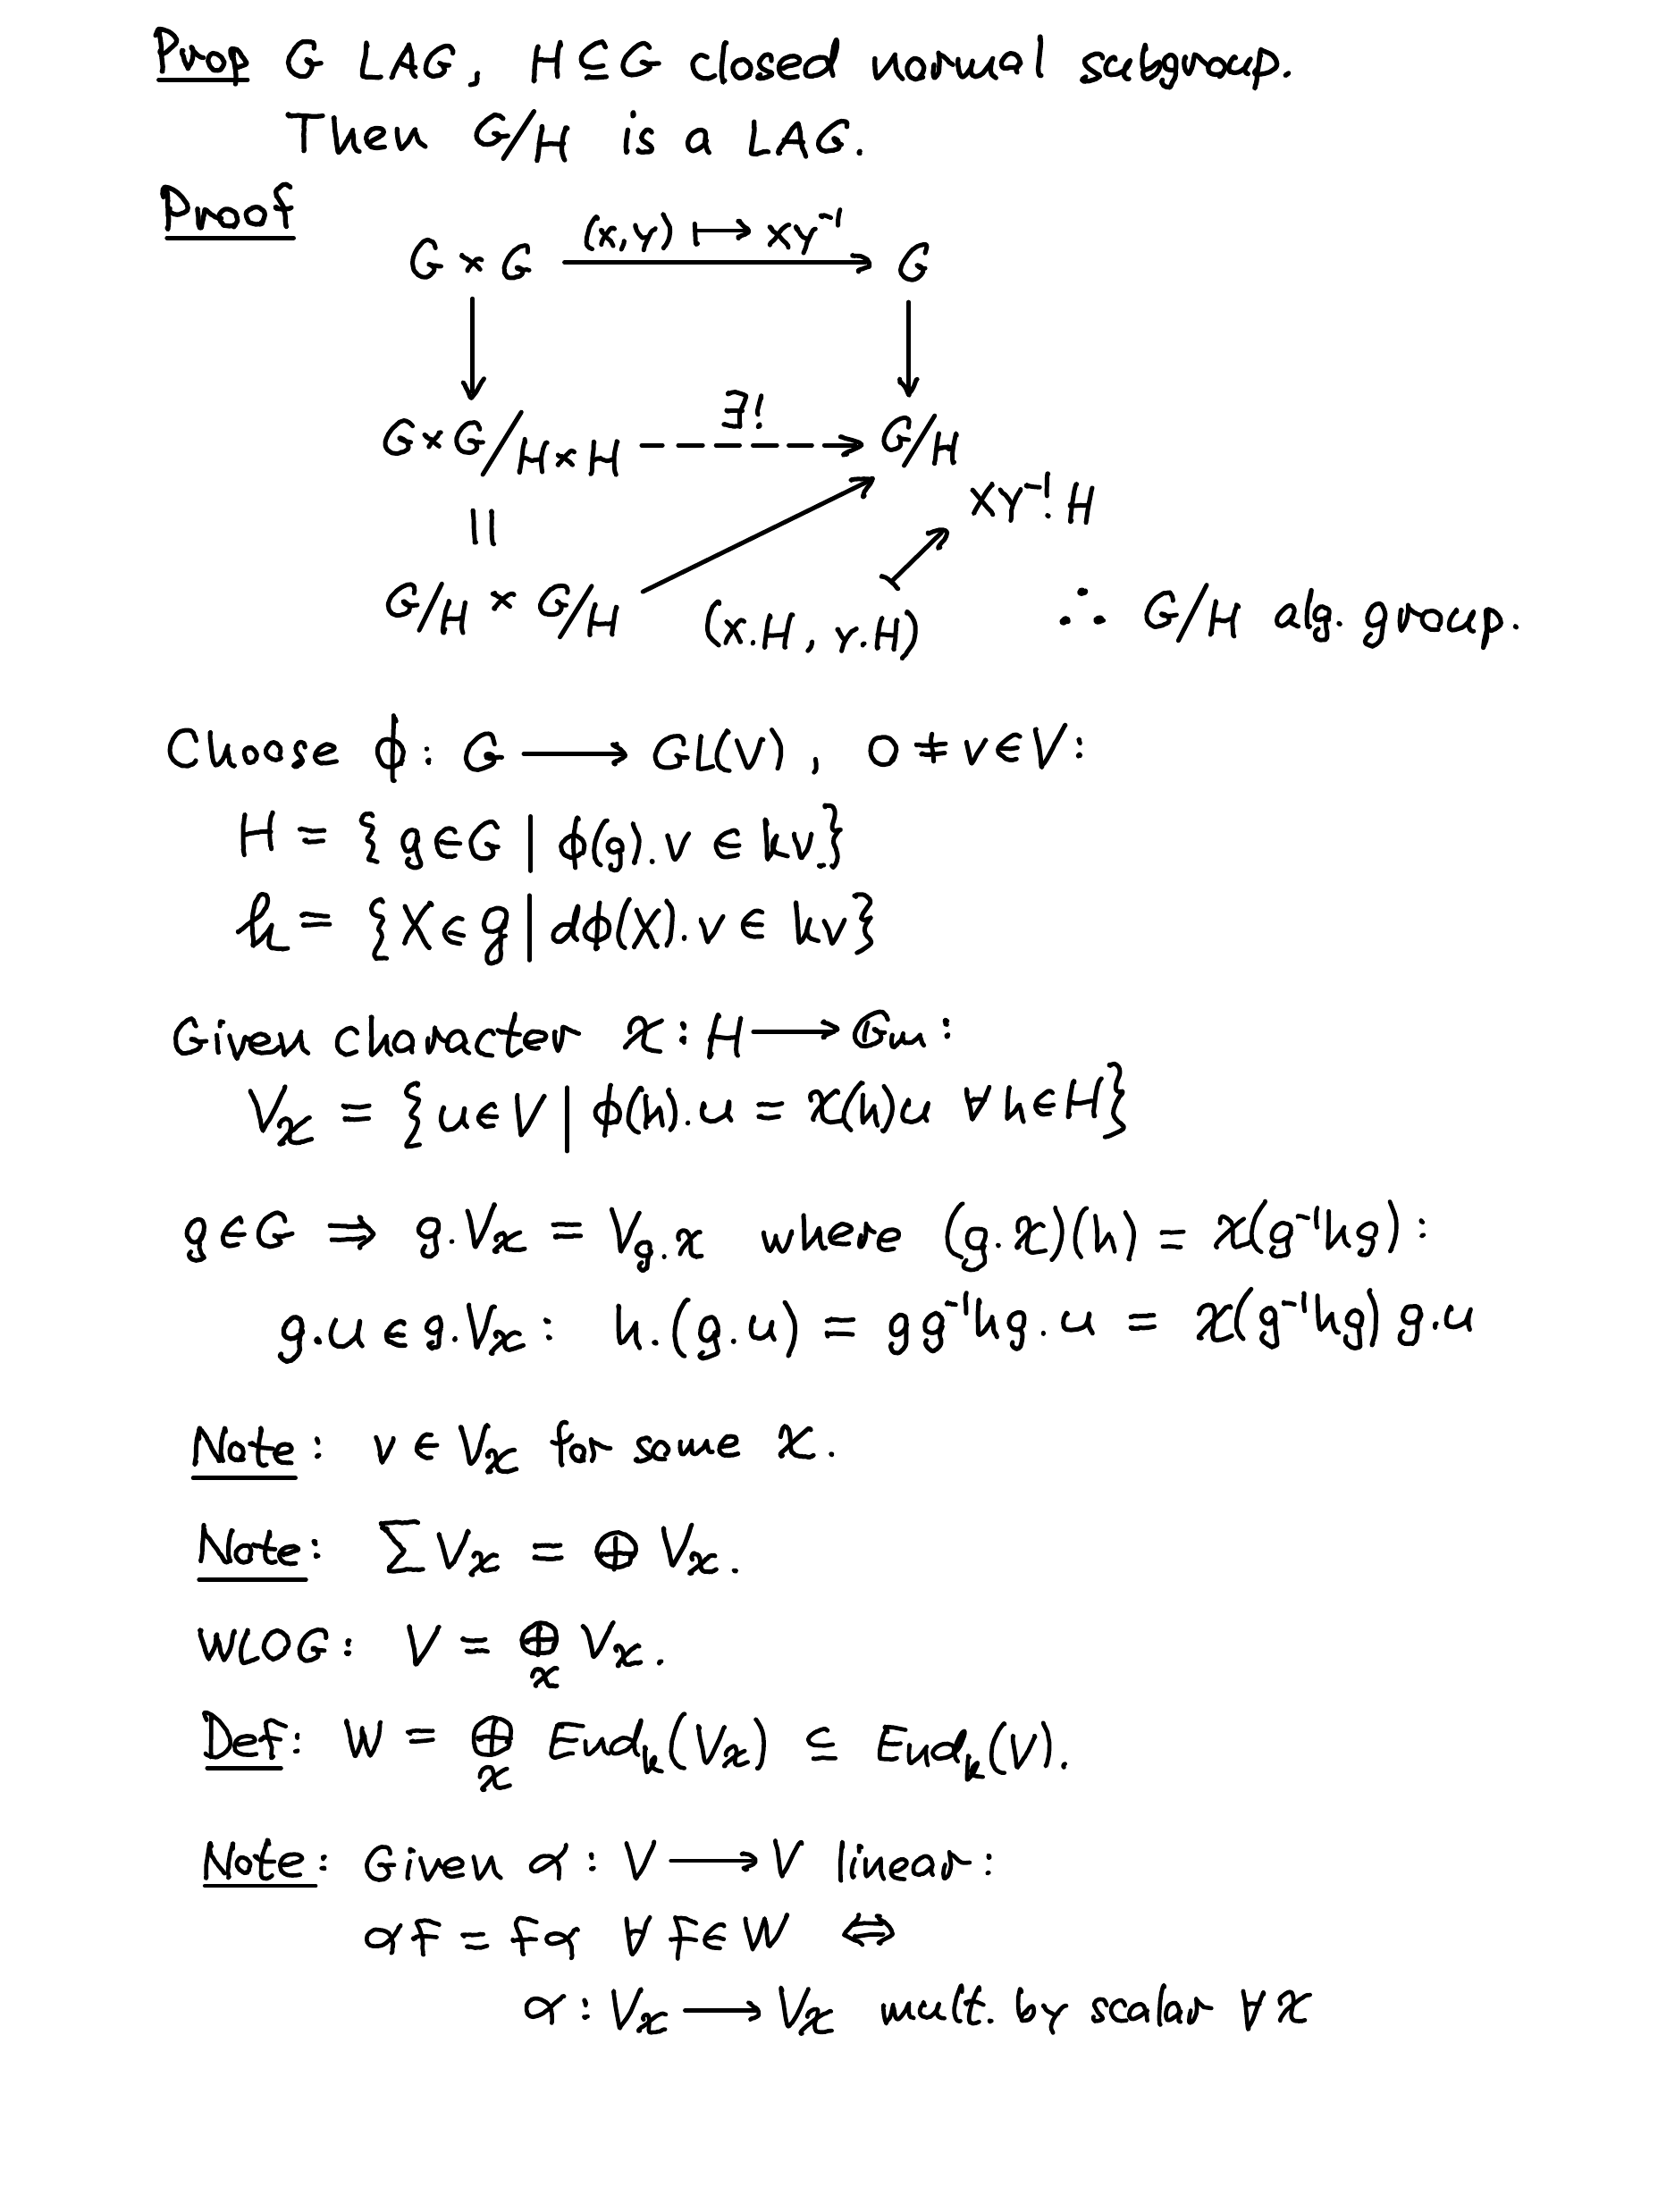 Prop G LAG, H ⊆ G closed normal subgroup.
Then G/H is a LAG.
Proof
(x,y) ⟼ xy⁻¹
G × G ⟶ G
G×G/H×H ⇢ G/H
∃!
xy⁻¹.H
||
G/H × G/H
(x.H, y.H)
∴ G/H alg. group.
Choose ϕ: G ⟶ GL(V), 0 ≠ v ∈ V:
H = {g ∈ G | ϕ(g).v ∈ kv}
𝔥 = {X ∈ 𝔤 | dϕ(X).v ∈ kv}
Given character χ: H ⟶ 𝔾m:
Vχ = {u ∈ V | ϕ(h).u = χ(h)u ∀ h ∈ H}
g ∈ G ⇒ g.Vχ = V_g.χ where (g.χ)(h) = χ(g⁻¹hg):
g.u ∈ g.Vχ: h.(g.u) = gg⁻¹hg.u = χ(g⁻¹hg) g.u
Note: v ∈ Vχ for some χ.
Note: ∑ Vχ = ⊕ Vχ.
WLOG: V = ⊕_χ Vχ.
Def: W = ⊕_χ End_k(Vχ) ⊆ End_k(V).
Note: Given α: V ⟶ V linear:
αf = fα ∀ f ∈ W ⇔
α: Vχ ⟶ Vχ mult. by scalar ∀ χ